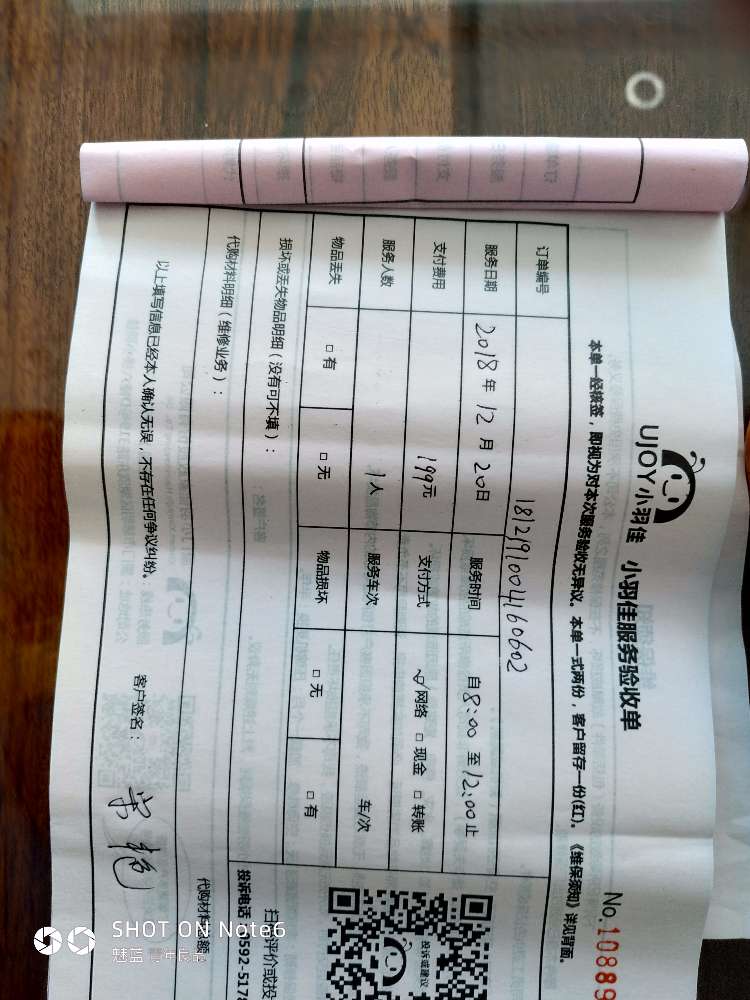 UJOY小羽佳
小羽佳服务验收单
No.10889
本单一经核签，即视为对本次服务验收无异议。本单一式两份，客户留存一份(红)。《维保须知》详见背面。
订单编号 1812191004160602
服务日期 2018年12月20日 服务时间 自8:00至12:00止
支付费用 199元 支付方式 ☑网络 □现金 □转账
服务人数 1人 服务车次 车/次
物品丢失 □有 □无 物品损坏 □无 □有
损坏或丢失物品明细（没有可不填）：
代购材料明细（维修业务）：
以上填写信息已经本人确认无误，不存在任何争议纠纷。
客户签名：
投诉或建议
投诉电话：0592-5178
SHOT ON Note6